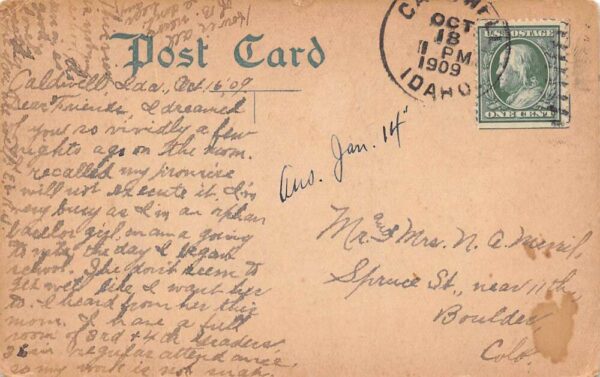 Post Card
CALDWELL
OCT
18
1 PM
1909
IDAHO
U.S. POSTAGE
ONE CENT
Caldwell, Ida., Oct 16 '09
Dear Friends, I dreamed
of you so vividly a few
nights ago on the
I recalled my promise
will not execute it. I'm
very busy as I'm an orphan
bachelor girl. mama going
to the day I began
school. She don't seem to
get well like I want her
to. I heard from her this
morn. I have a full
room of 3rd & 4th graders
36 in regular attendance
so my work is not
Ans. Jan. 14"
Mr. & Mrs. N. A. Merril,
Spruce St., near 11th,
Boulder,
Colo.